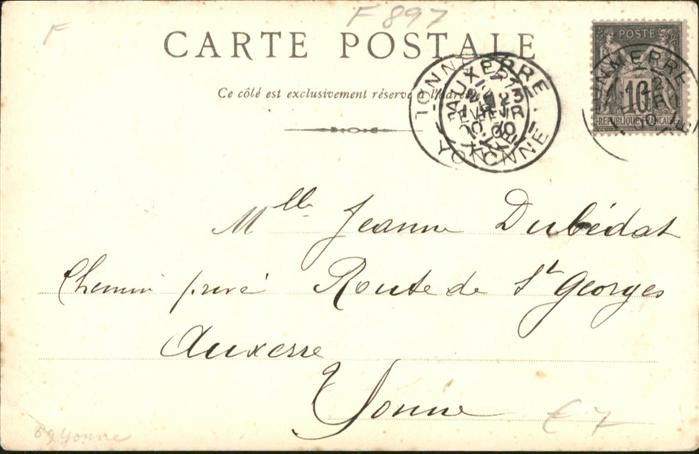 F
F 897
CARTE POSTALE
Ce côté est exclusivement réservé à l'adresse
POSTE
10
REPUBLIQUE FRANÇAISE
AUXERRE
YONNE
Mlle Jeanne Dubédat
Chemin privé Route de St Georges
Auxerre
Yonne
€7
89 Yonne